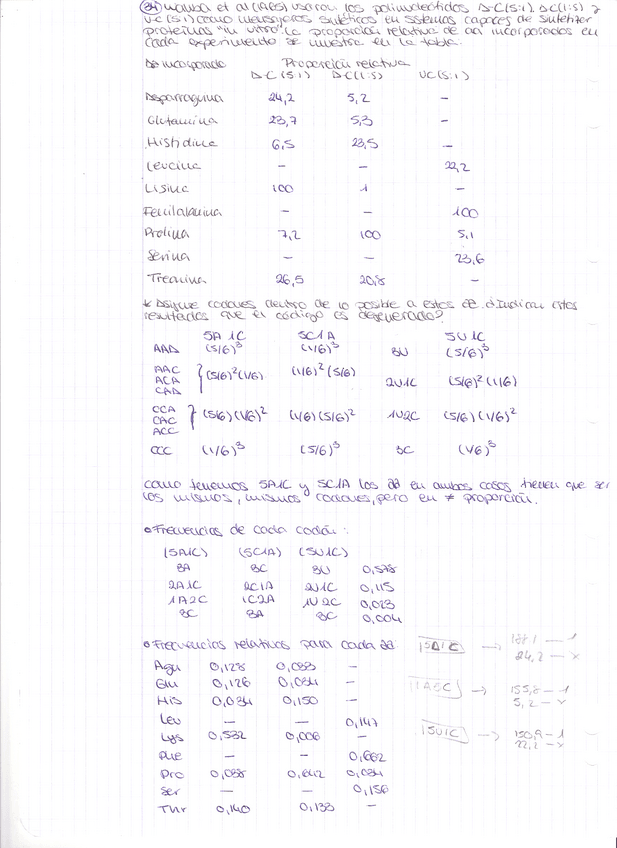 34 Wahba et al (1963) usaron los polinucleótidos AC (5:1), AC (1:5) y
UC (5:1) como mensajeros sintéticos en sistemas capaces de sintetizar
proteínas "in vitro". La proporción relativa de aa incorporados en
cada experimento se muestra en la tabla.
aa incorporado Proporción relativa
AC (5:1) AC (1:5) UC (5:1)
Asparragina 24,2 5,2 –
Glutamina 23,7 5,3 –
Histidina 6,5 23,5 –
Leucina – – 22,2
Lisina 100 1 –
Fenilalanina – – 100
Prolina 7,2 100 5,1
Serina – – 23,6
Treonina 26,5 20,8 –
* Asigne codones dentro de lo posible a estos aa. ¿Indican estos
resultados que el código es degenerado?
5A1C 5C1A 5U1C
AAA (5/6)³ (1/6)³ 3U (5/6)³
AAC
ACA } (5/6)² (1/6) (1/6)² (5/6) 2U1C (5/6)² (1/6)
CAA
CCA
CAC } (5/6) (1/6)² (1/6) (5/6)² 1U2C (5/6) (1/6)²
ACC
CCC (1/6)³ (5/6)³ 3C (1/6)³
Como tenemos 5A1C y 5C1A los aa en ambos casos tienen que ser
los mismos, mismos codones, pero en ≠ proporción.
• Frecuencias de cada codón:
(5A1C) (5C1A) (5U1C)
3A 3C 3U 0,578
2A1C 2C1A 2U1C 0,115
1A2C 1C2A 1U2C 0,023
3C 3A 3C 0,004
• Frecuencias relativas para cada aa:
Agn 0,128 0,033 –
Gln 0,126 0,034 –
His 0,034 0,150 –
Leu – – 0,147
Lys 0,532 0,006 –
Phe – – 0,662
Pro 0,038 0,642 0,034
Ser – – 0,156
Thr 0,140 0,133 –
5A1C → 188,1 — 1
24,2 — x
1A5C → 155,8 — 1
5,2 — x
5U1C → 150,9 — 1
22,2 — x